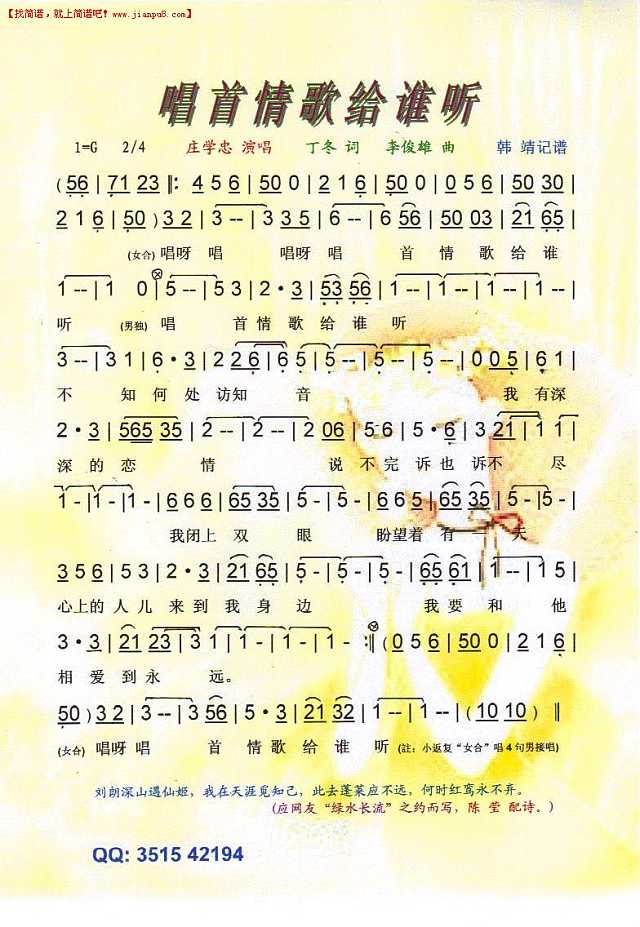 【找简谱，就上简谱吧！www.jianpu8.com】
唱首情歌给谁听
1=G 2/4 庄学忠 演唱 丁冬 词 李俊雄 曲 韩 靖记谱
( 56 | 71 23 ‖: 4 5 6 | 50 0 | 2 1 6 | 50 0 | 0 5 6 | 50 30 |
2 1 6 | 50 ) 3 2 | 3 -- | 3 3 5 | 6 -- | 6 56 | 50 03 | 21 65 |
(女合) 唱呀 唱 唱呀 唱 首 情 歌 给 谁
1 -- | 1 0 | 5 -- | 5 3 | 2 · 3 | 53 56 | 1 -- | 1 -- | 1 -- |
听 (男独) 唱 首 情 歌 给 谁 听
3 -- | 3 1 | 6 · 3 | 2 2 6 | 6 5 | 5 -- | 5 -- | 5 -- | 0 0 5 | 6 1 |
不 知 何 处 访知 音 我 有深
2 · 3 | 565 35 | 2 -- | 2 -- | 2 06 | 5 6 | 5 · 6 | 3 21 | 1 1 |
深 的 恋 情 说 不 完 诉 也 诉不 尽
1 - | 1 - | 1 - | 6 6 6 | 65 35 | 5 - | 5 - | 6 6 5 | 65 35 | 5 - | 5 - |
我闭上 双 眼 盼望着 有 一 天
3 5 6 | 5 3 | 2 · 3 | 21 65 | 5 - | 5 - | 5 - | 65 61 | 1 - | 1 5 |
心上的 人 儿 来 到 我 身 边 我 要 和 他
3 · 3 | 21 23 | 3 1 | 1 - | 1 - | 1 - :‖ ( 0 5 6 | 50 0 | 2 1 6 |
相 爱 到 永 远。
50 ) 3 2 | 3 -- | 3 56 | 5 · 3 | 21 32 | 1 -- | 1 -- | ( 10 10 ) ‖
(女合) 唱呀 唱 首 情 歌 给 谁 听 (註：小返复“女合”唱4句男接唱)
刘朗深山遇仙姬，我在天涯觅知己，此去蓬莱应不远，何时红鸾永不弃。
(应网友“绿水长流”之约而写，陈 莹 配诗。)
QQ: 3515 42194